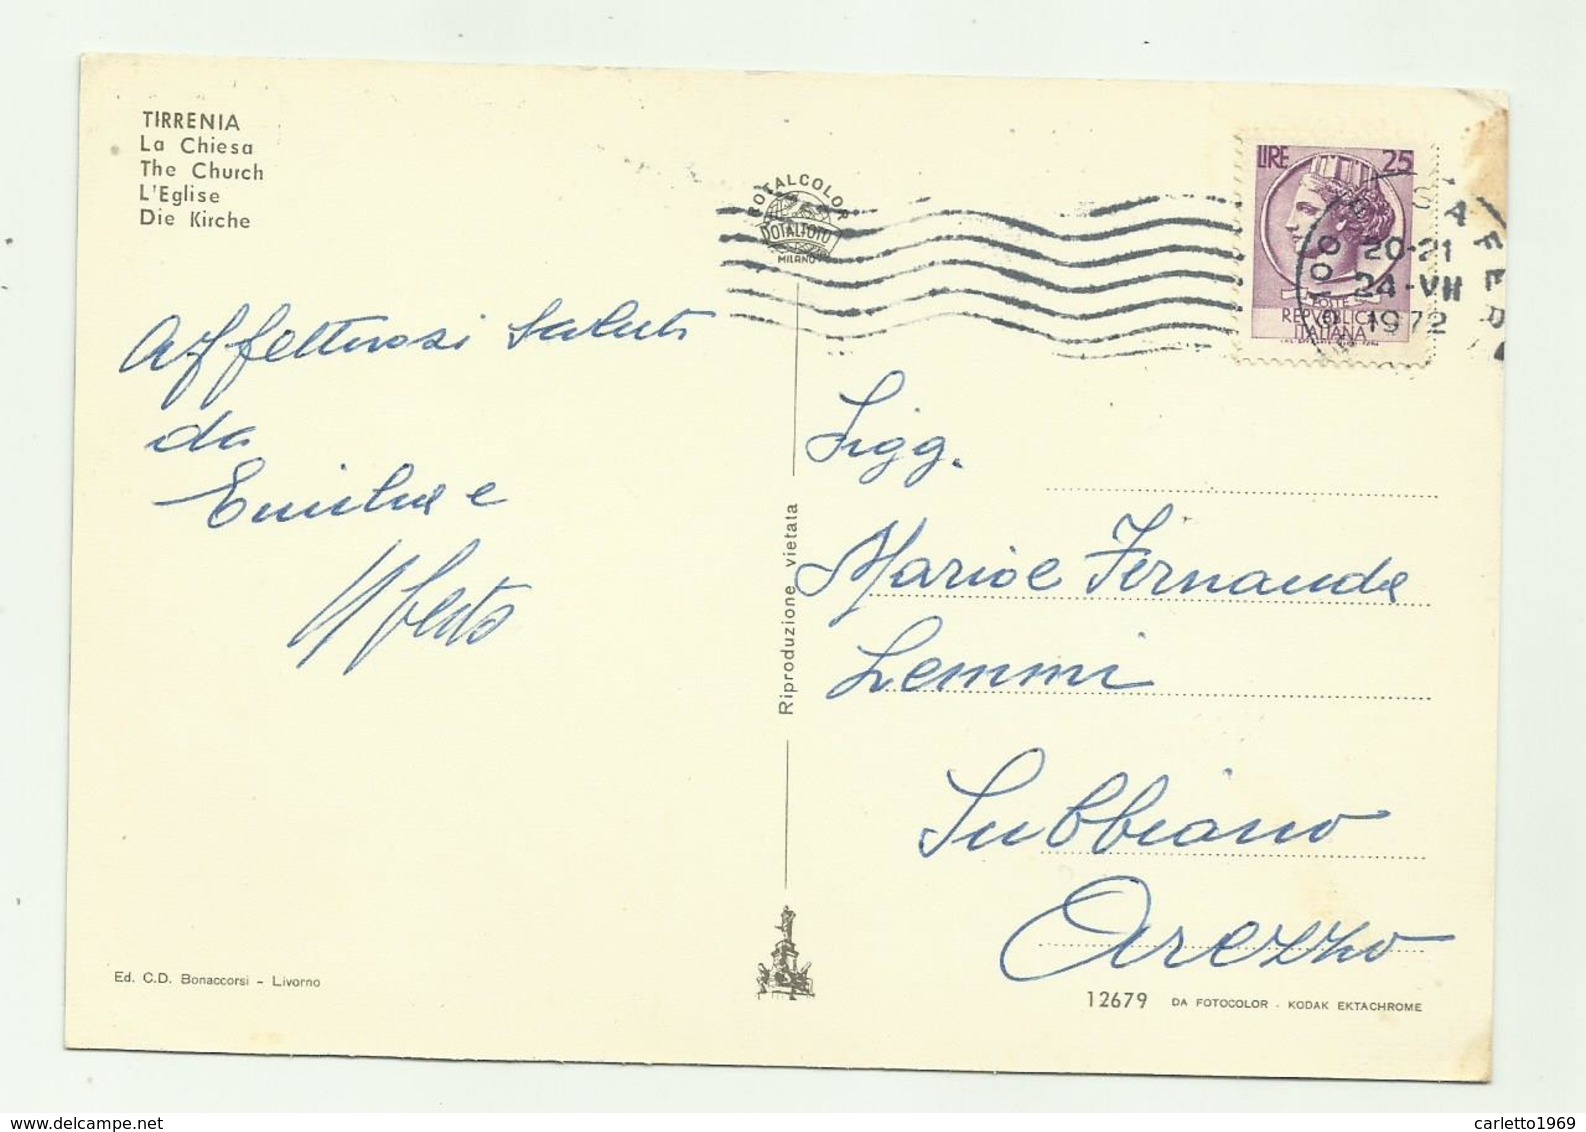 TIRRENIA
La Chiesa
The Church
L'Eglise
Die Kirche
ROTALCOLOR
ROTALFOTO
MILANO
LIRE 25
POSTE
REPVBLICA
ITALIANA
PISA FERR
20-21
24-VII
1972
Affettuosi saluti
da
Emilia e
Uberto
Sigg.
Mario e Fernanda
Lemmi
Subbiano
Arezzo
Riproduzione vietata
Ed. C.D. Bonaccorsi - Livorno
12679 DA FOTOCOLOR - KODAK EKTACHROME
carletto1969